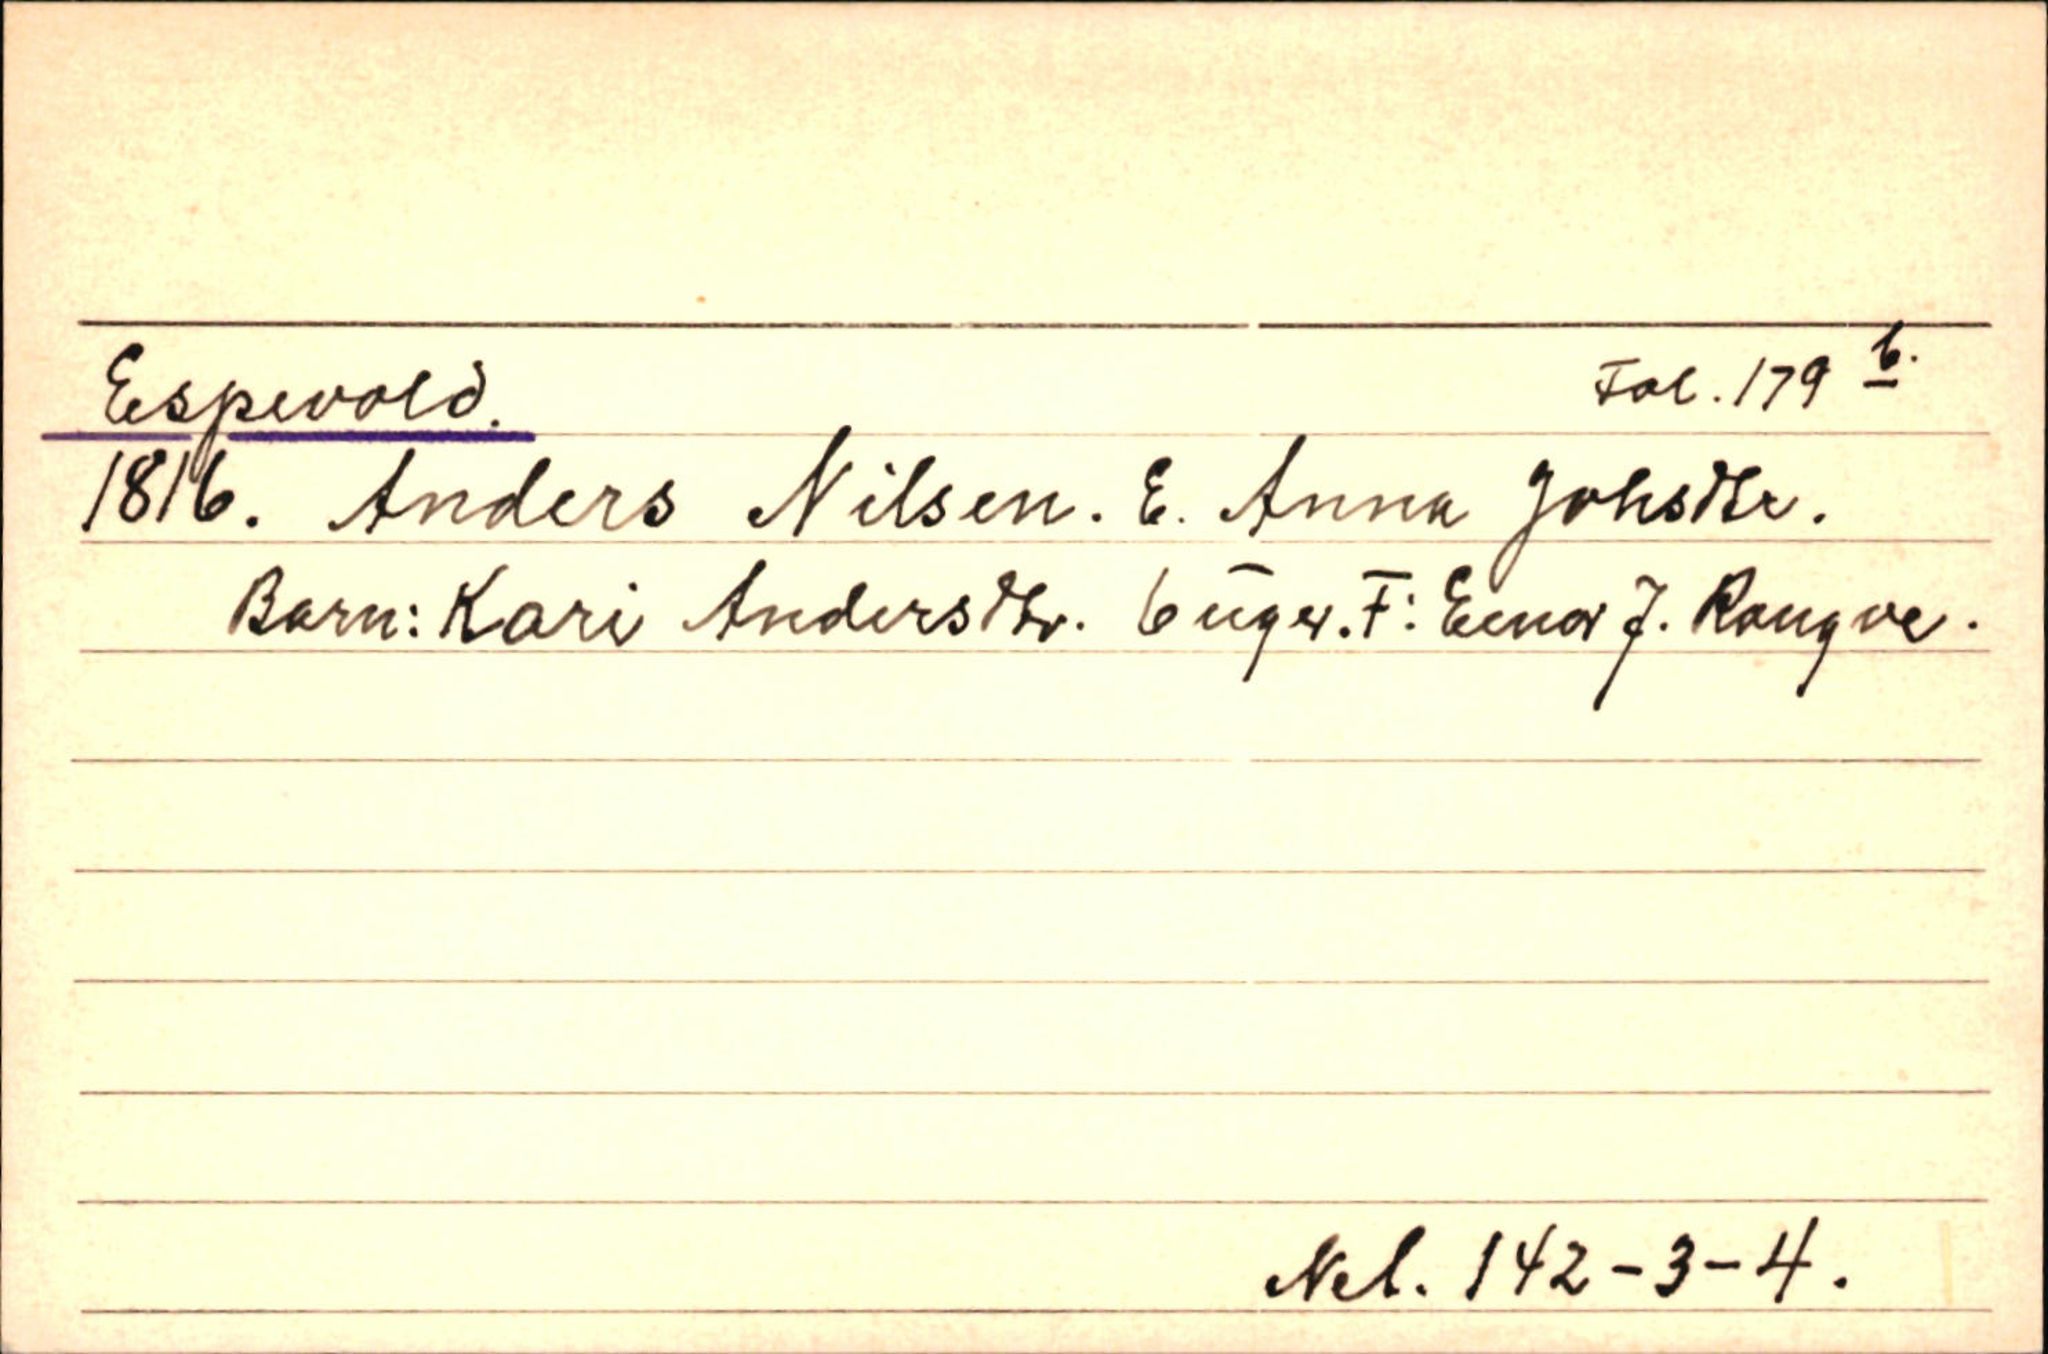 Espevold. Fol. 179 b.
1816. Anders Nilsen. E. Anna Johsdtr.
Barn: Kari Andersdtr. 6 uger. F: Einar J. Rongve.
Nel. 142-3-4.